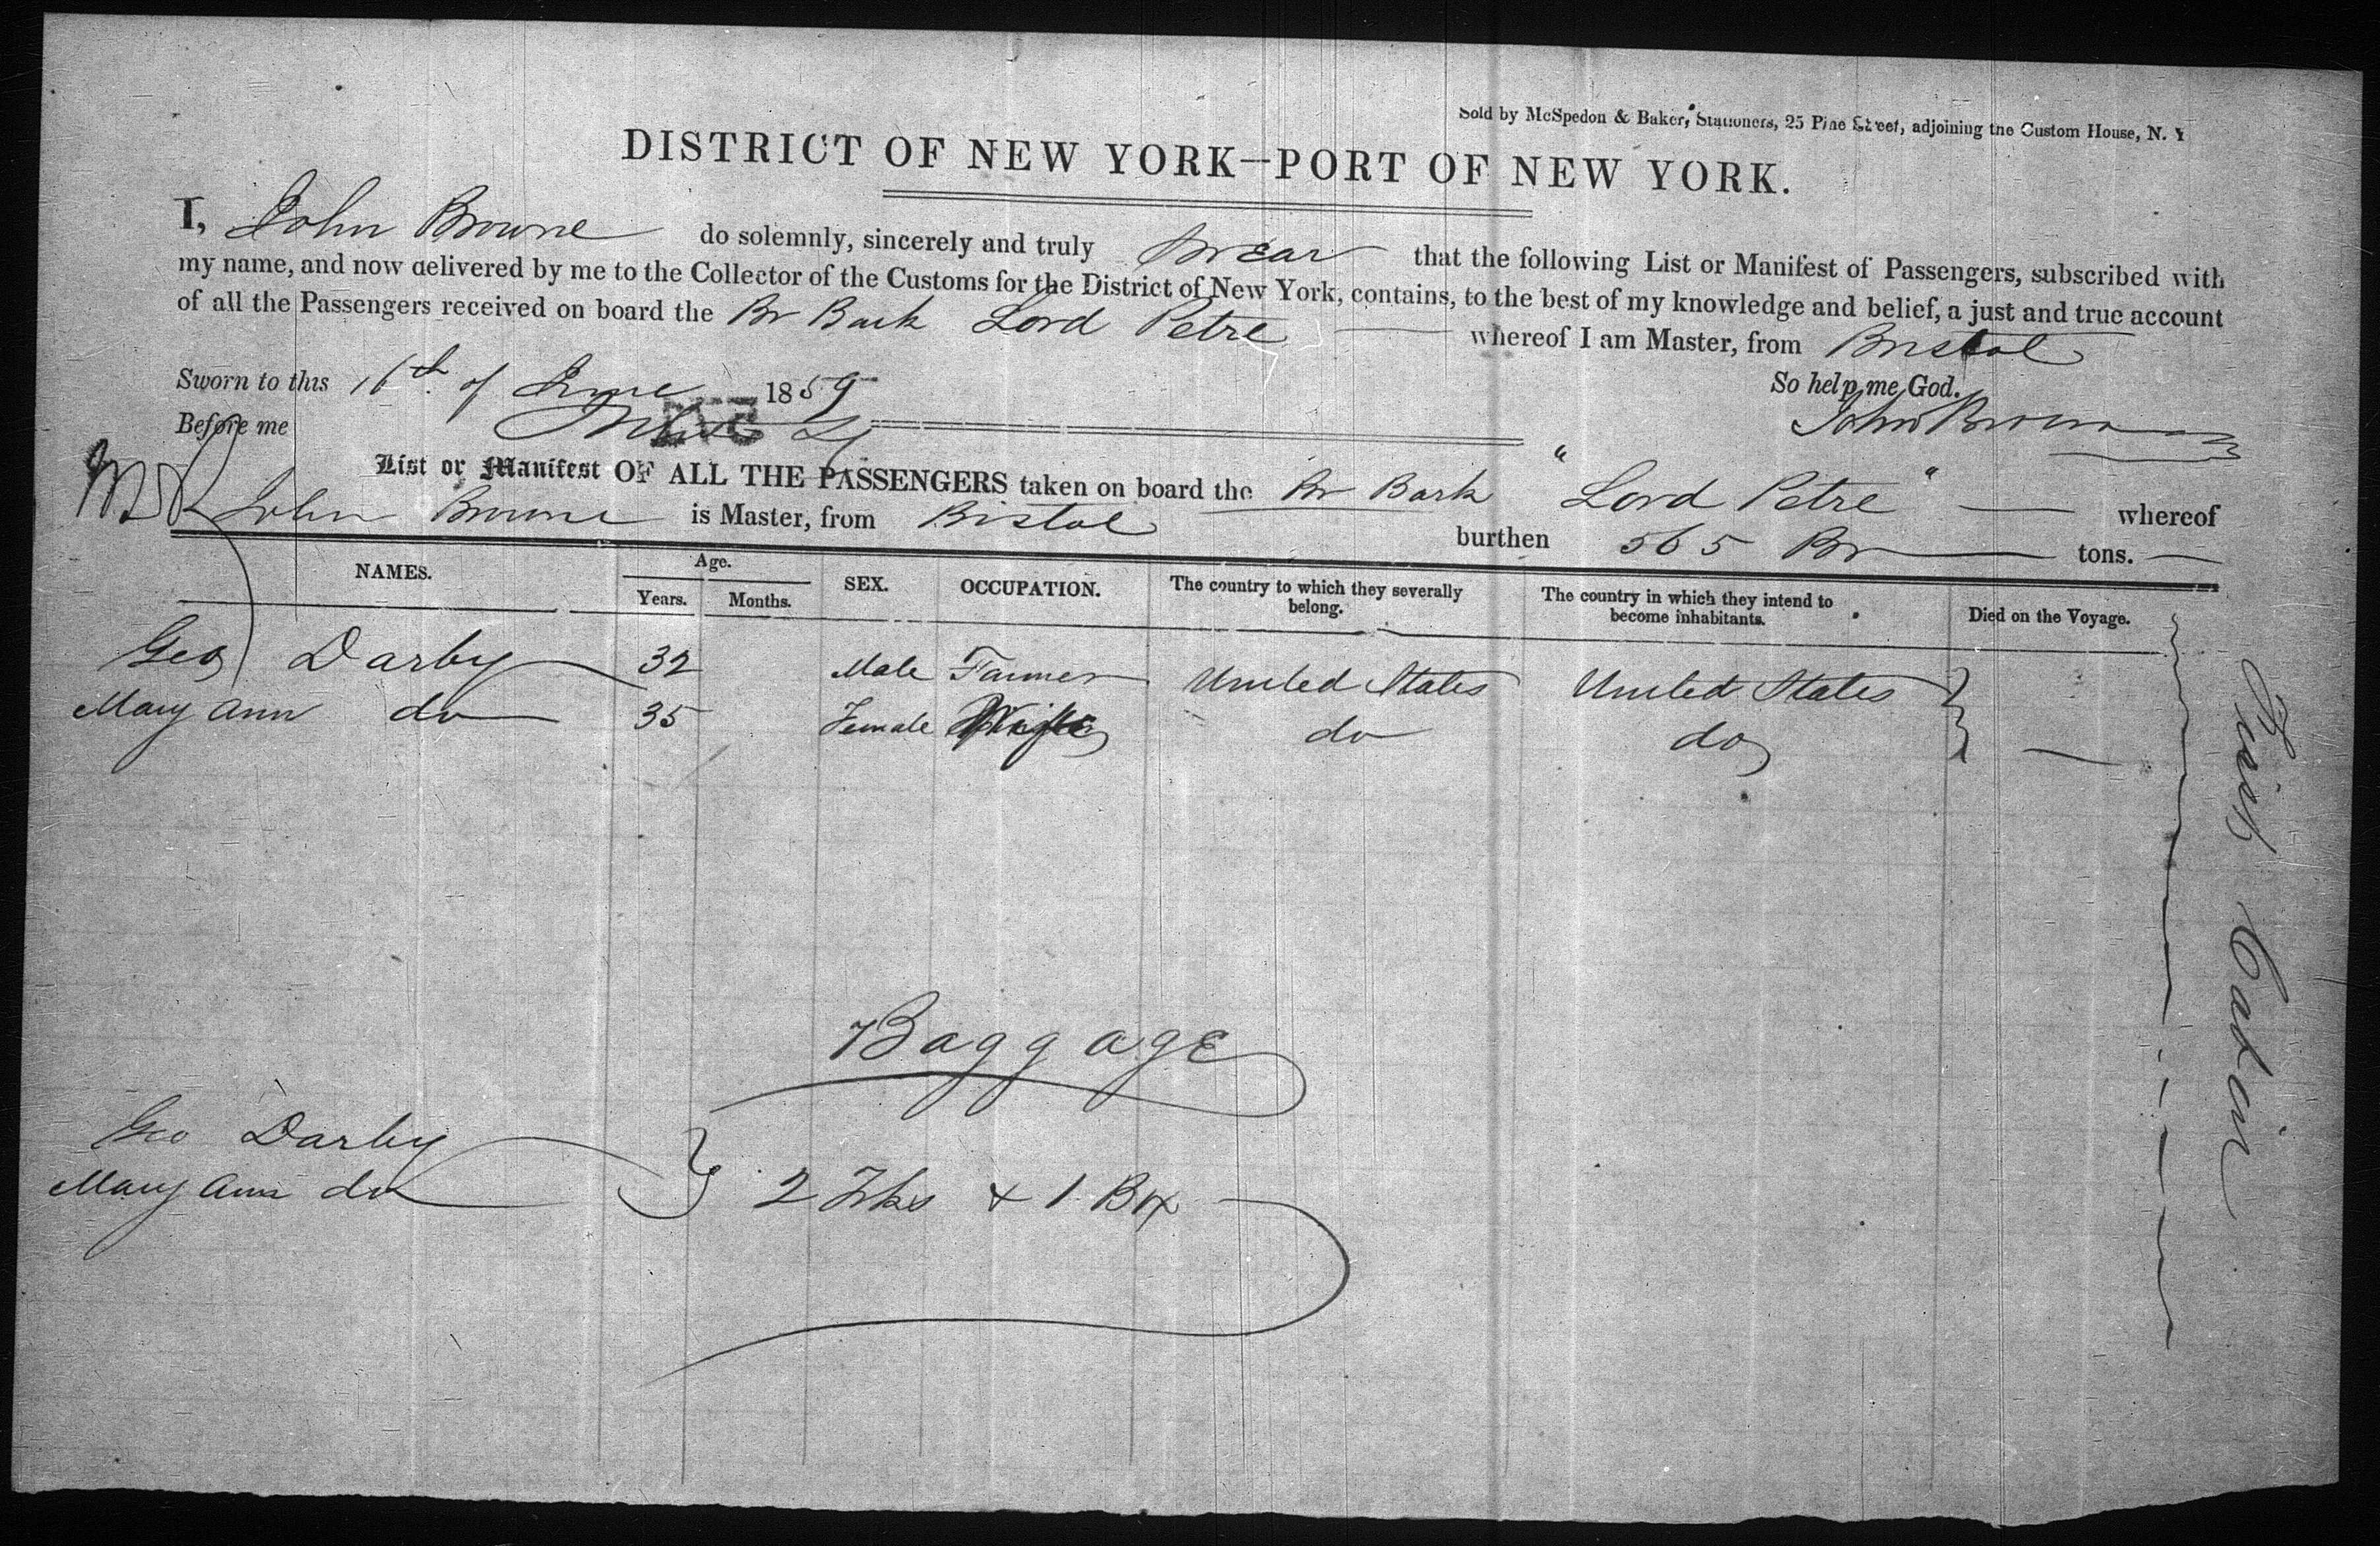 Sold by McSpedon & Baker, Stationers, 25 Pine Street, adjoining the Custom House, N. Y
DISTRICT OF NEW YORK—PORT OF NEW YORK.
I, John Browne do solemnly, sincerely and truly swear that the following List or Manifest of Passengers, subscribed with
my name, and now delivered by me to the Collector of the Customs for the District of New York, contains, to the best of my knowledge and belief, a just and true account
of all the Passengers received on board the Br Bark Lord Petre whereof I am Master, from Bristol
Sworn to this 16th of June 1859 So help me God.
Before me John Browne
List or Manifest OF ALL THE PASSENGERS taken on board the Br Bark "Lord Petre" whereof
John Browne is Master, from Bristol burthen 565 Br tons.
NAMES. Age. Years. Months. SEX. OCCUPATION. The country to which they severally belong. The country in which they intend to become inhabitants. Died on the Voyage.
Geo Darby 32 Male Farmer United States United States
Mary Ann do 35 Female Wife do do
First Cabin
Baggage
Geo Darby
Mary Ann do 2 Tks + 1 Bx